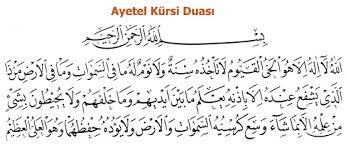 Ayetel Kürsi Duası
بِسْمِ اللهِ الرَّحْمٰنِ الرَّحِيمِ
اَللهُ لَا اِلٰهَ اِلَّا هُوَ الْحَىُّ الْقَيُّومُ لَا تَأْخُذُهُ سِنَةٌ وَلَا نَوْمٌ لَهُ مَا فِى السَّمٰوَاتِ وَمَا فِى الْاَرْضِ مَنْ ذَا
الَّذِى يَشْفَعُ عِنْدَهُ اِلَّا بِاِذْنِهِ يَعْلَمُ مَا بَيْنَ اَيْدِيهِمْ وَمَا خَلْفَهُمْ وَلَا يُحِيطُونَ بِشَىْءٍ
مِنْ عِلْمِهِ اِلَّا بِمَا شَاءَ وَسِعَ كُرْسِيُّهُ السَّمٰوَاتِ وَالْاَرْضَ وَلَا يَؤُدُهُ حِفْظُهُمَا وَهُوَ الْعَلِىُّ الْعَظِيمُ